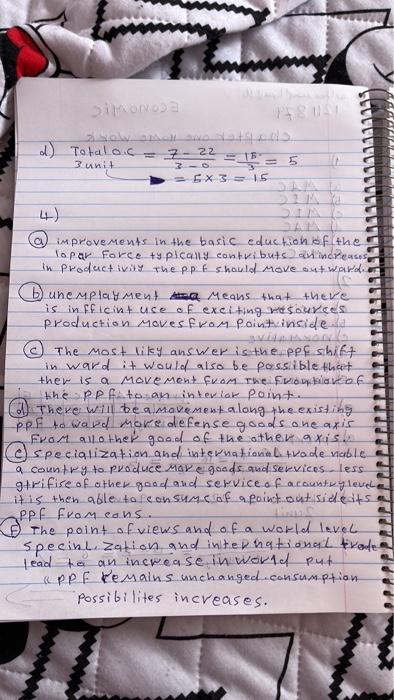 d) Total o.c = 7 - 22 / 3 - 0 = 15 / 3 = 5
3 unit
= 5 x 3 = 15
4)
(a) improvements in the basic eduction of the
lopar Force typically contributs an increases
in productivity the PPF should move outward.
(b) unemployment means that there
is inefficint use of exciting resources
production moves from point inside.
(c) The most likly answer is the PPF shift
in ward it would also be possible that
ther is a movement from the Frontior of
the PPF to an interior point.
(d) There will be a movement along the existing
PPF to ward more defense goods one axis
From all other good of the other axis.
(e) specialization and international trade nable
a country to produce more goods and services. less
of other good and service of a country level
it is then able to consume of a point out side its
PPF From eans.
(F) The point of views and of a world level
Specinlization and international trade
lead to an increase in world put
PPF remains unchanged. consumption
possibilites increases.